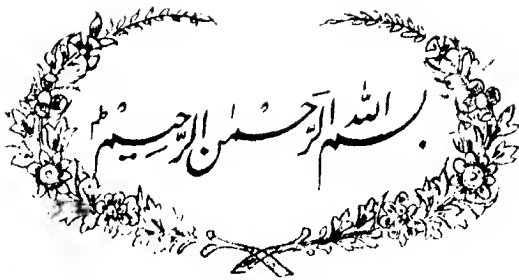 بسم اللہ الرَّحْمٰنِ الرَّحِیْمِ ط